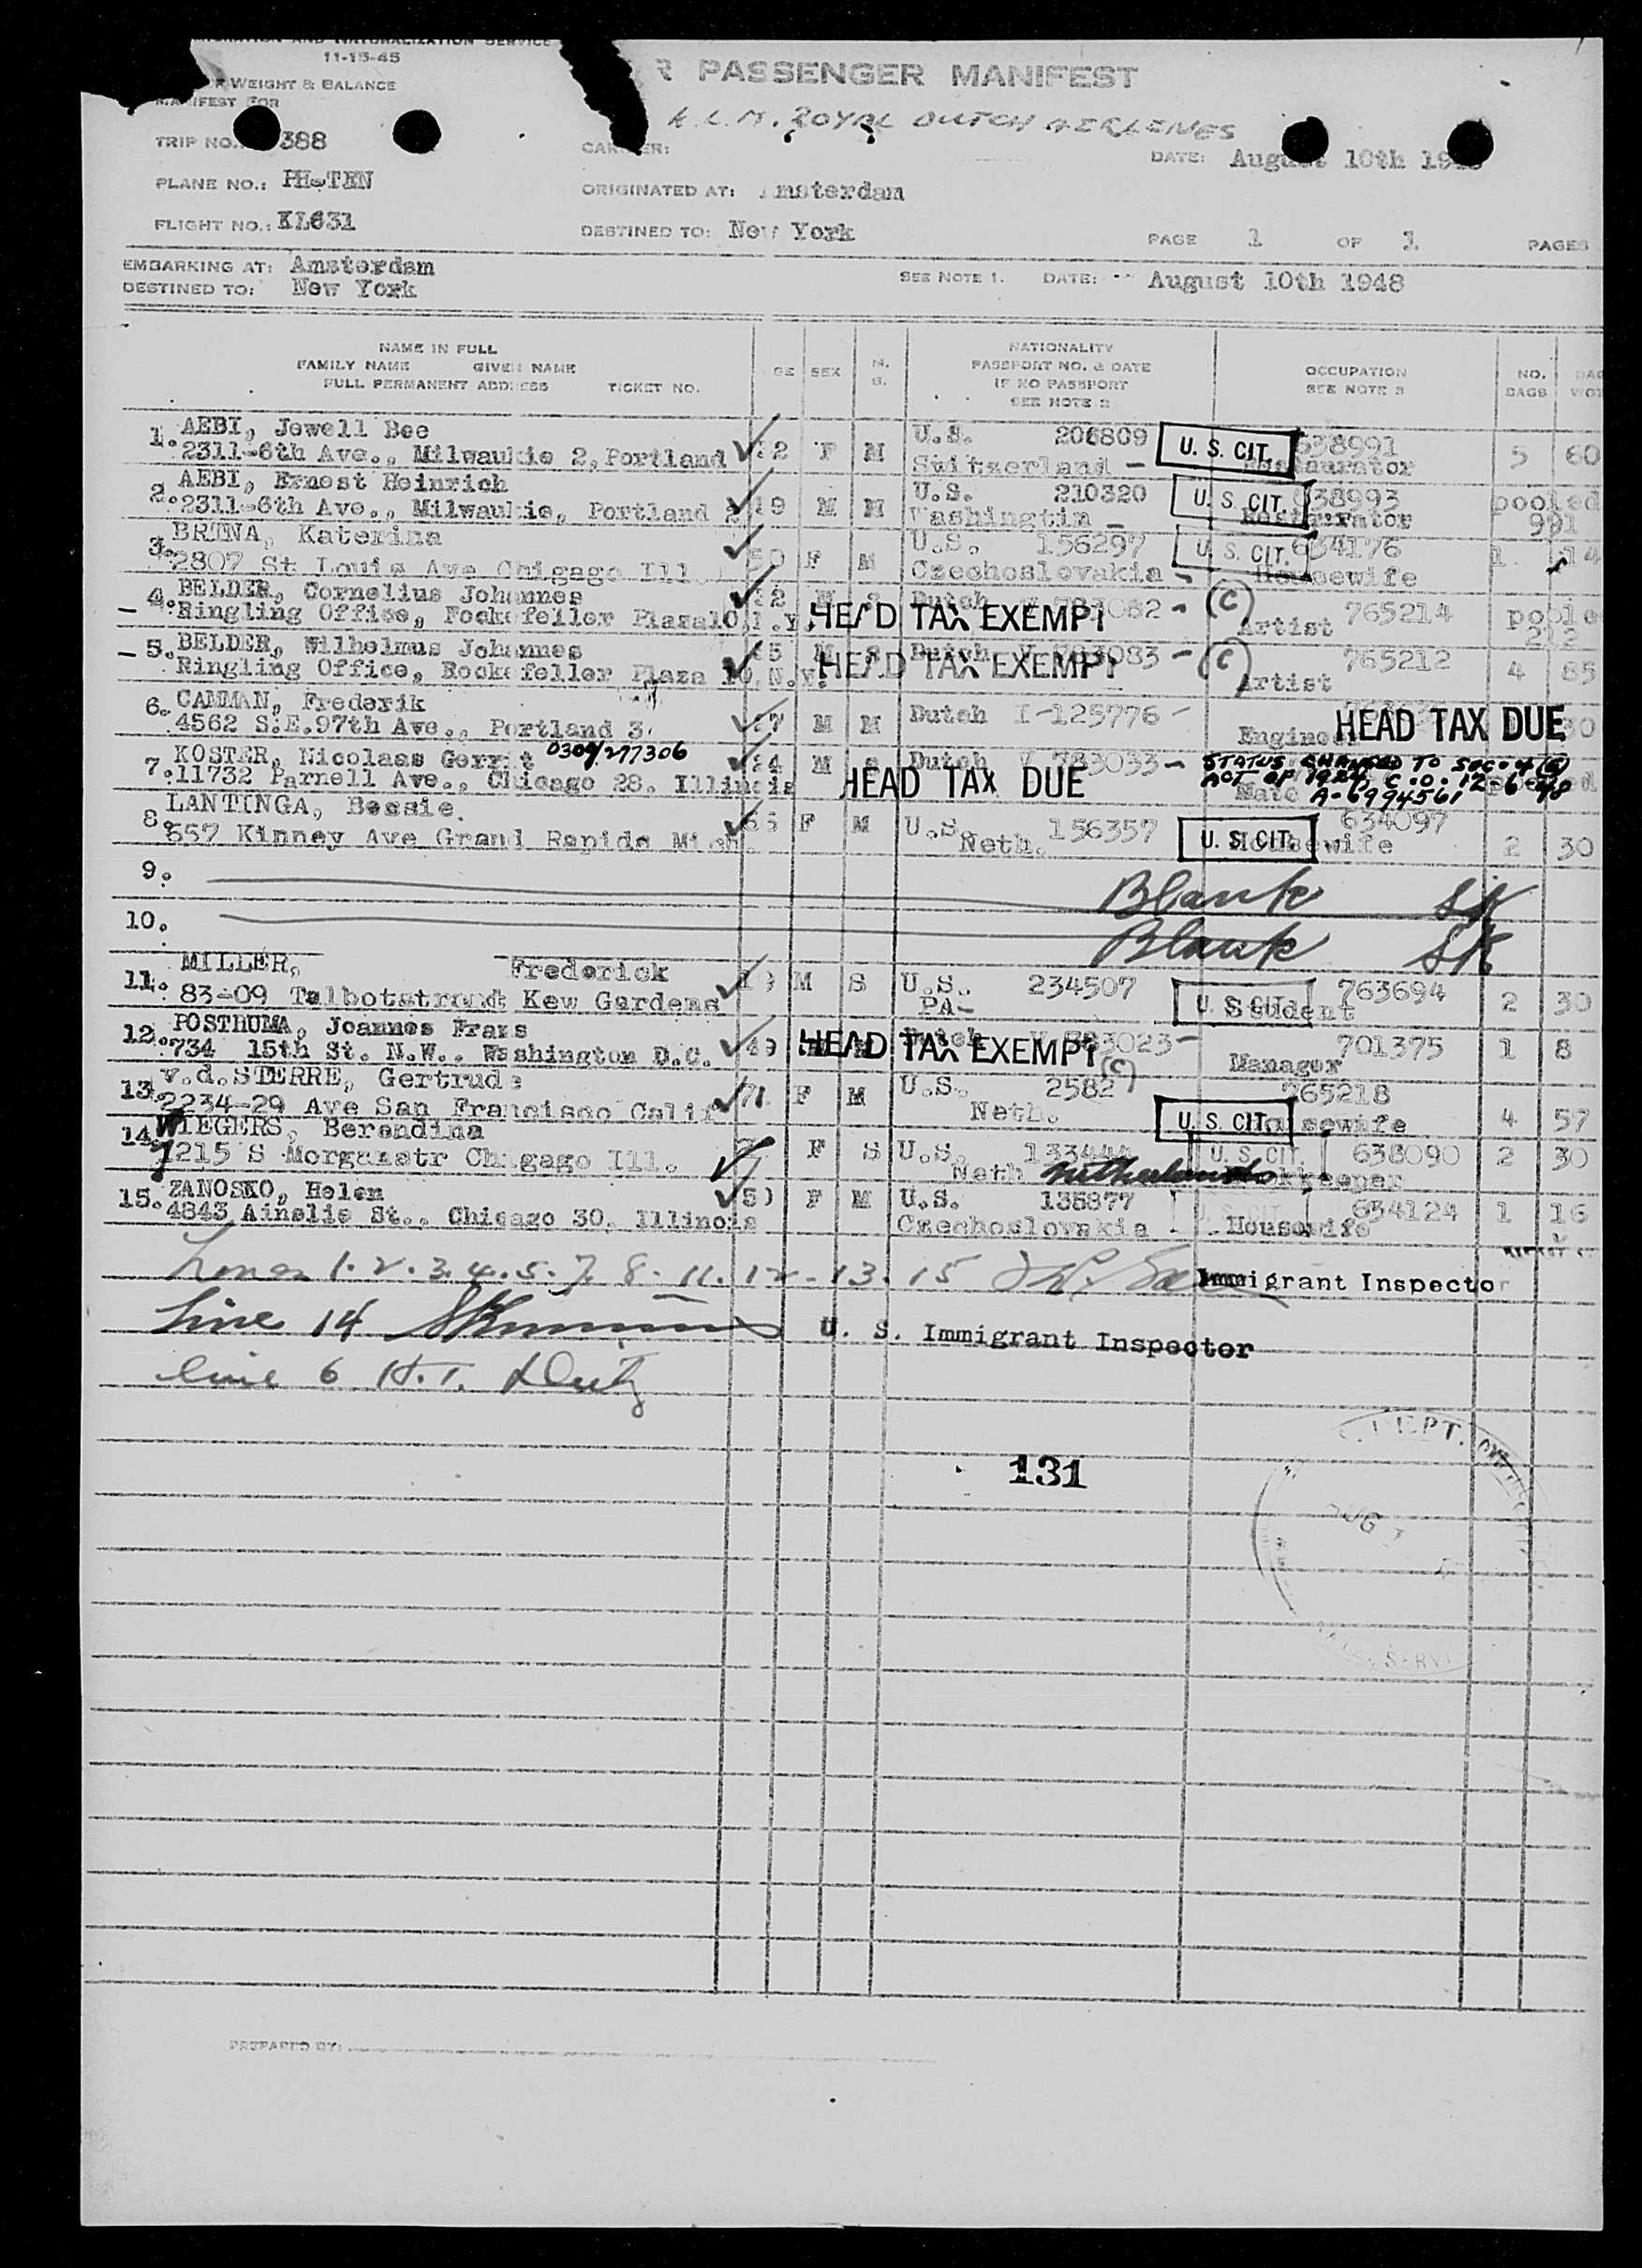 IMMIGRATION AND NATURALIZATION SERVICE
11-15-45
WEIGHT & BALANCE
MANIFEST FOR
R PASSENGER MANIFEST
K.L.M. ROYAL DUTCH AIRLINES
TRIP NO. 388
CARRIER:
DATE: August 10th
PLANE NO.: PH-TEN
ORIGINATED AT: Amsterdam
FLIGHT NO.: KL631
DESTINED TO: New York
PAGE 1 OF 1 PAGES
EMBARKING AT: Amsterdam
SEE NOTE 1. DATE: August 10th 1948
DESTINED TO: New York
NAME IN FULL
FAMILY NAME GIVEN NAME
FULL PERMANENT ADDRESS TICKET NO.
GE SEX
NATIONALITY
PASSPORT NO. & DATE
IF NO PASSPORT
SEE NOTE 2
OCCUPATION
SEE NOTE 3
NO.
BAGS
1. AEBI, Jewell Bee U.S. 206809 U. S. CIT. 638991
2311-6th Ave., Milwaukie 2, Portland F M Switzerland - Restaurator 5 60
2. AEBI, Ernest Heinrich U.S. 210320 U. S. CIT. 638993 pooled
2311-6th Ave., Milwaukie, Portland 2 M M Washingtin - Restaurator 991
3. BRTNA, Katerina U.S. 156297 U. S. CIT. 634176
2807 St Louis Ave Chigago Ill. 50 F M Czechoslovakia - Housewife 1. 14
4. BELDER, Cornelius Johannes Dutch HEAD TAX EXEMPT (C) 765214
Ringling Office, Rockefeller Plaza10,N.Y. Artist pooled 212
5. BELDER, Wilhelmus Johannes Dutch V 783083 - HEAD TAX EXEMPT (C) 765212
Ringling Office, Rockefeller Plaza 10,N.Y. Artist 4 85
6. CAMMAN, Frederik
4562 S.E.97th Ave., Portland 3. M M Dutch I-125776 - Engineer HEAD TAX DUE
7. KOSTER, Nicolaas Gerrit 0300/277306 24 M Dutch V 783033 - STATUS CHANGED TO SEC. 4
11732 Parnell Ave., Chicago 28, Illinois HEAD TAX DUE Mate ACT OF 1924, C.O. 12-6-48
A-6994561
8. LANTINGA, Bessie. F M U.S. 156357 U. S. CIT. 634097
557 Kinney Ave Grand Rapids Mich. Neth. Housewife 2 30
9. Blank SK
10. Blank SK
11. MILLER, Frederick M S U.S. 234507 U. S. CIT. 763694
83-09 Talbotstreet Kew Gardens PA- Student 2 30
12. POSTHUMA, Joannes Frans 49 HEAD TAX EXEMPT (C) Dutch 701375
734 15th St. N.W., Washington D.C. Manager 1 8
13. v.d.STERRE, Gertrude 71 F M U.S. 2582 765218
2234-29 Ave San Francisco Calif Neth. U. S. CIT. Housewife 4 57
14. WIEGERS, Berendina F S U.S. 133444 U. S. CIT. 638090 2 30
7215 S Morganstr Chigago Ill. Neth Netherlands
15. ZANOSKO, Helen 50 F M U.S. 135877 634124 1 16
4843 Ainslie St., Chicago 30, Illinois Czechoslovakia Housewife
Lines 1. 2. 3. 4. 5. 7. 8. 11. 12. 13. 15 Immigrant Inspector
Line 14 U. S. Immigrant Inspector
line 6 H.T.
131
DEPT. OF
AUG
SERV
PREPARED BY: